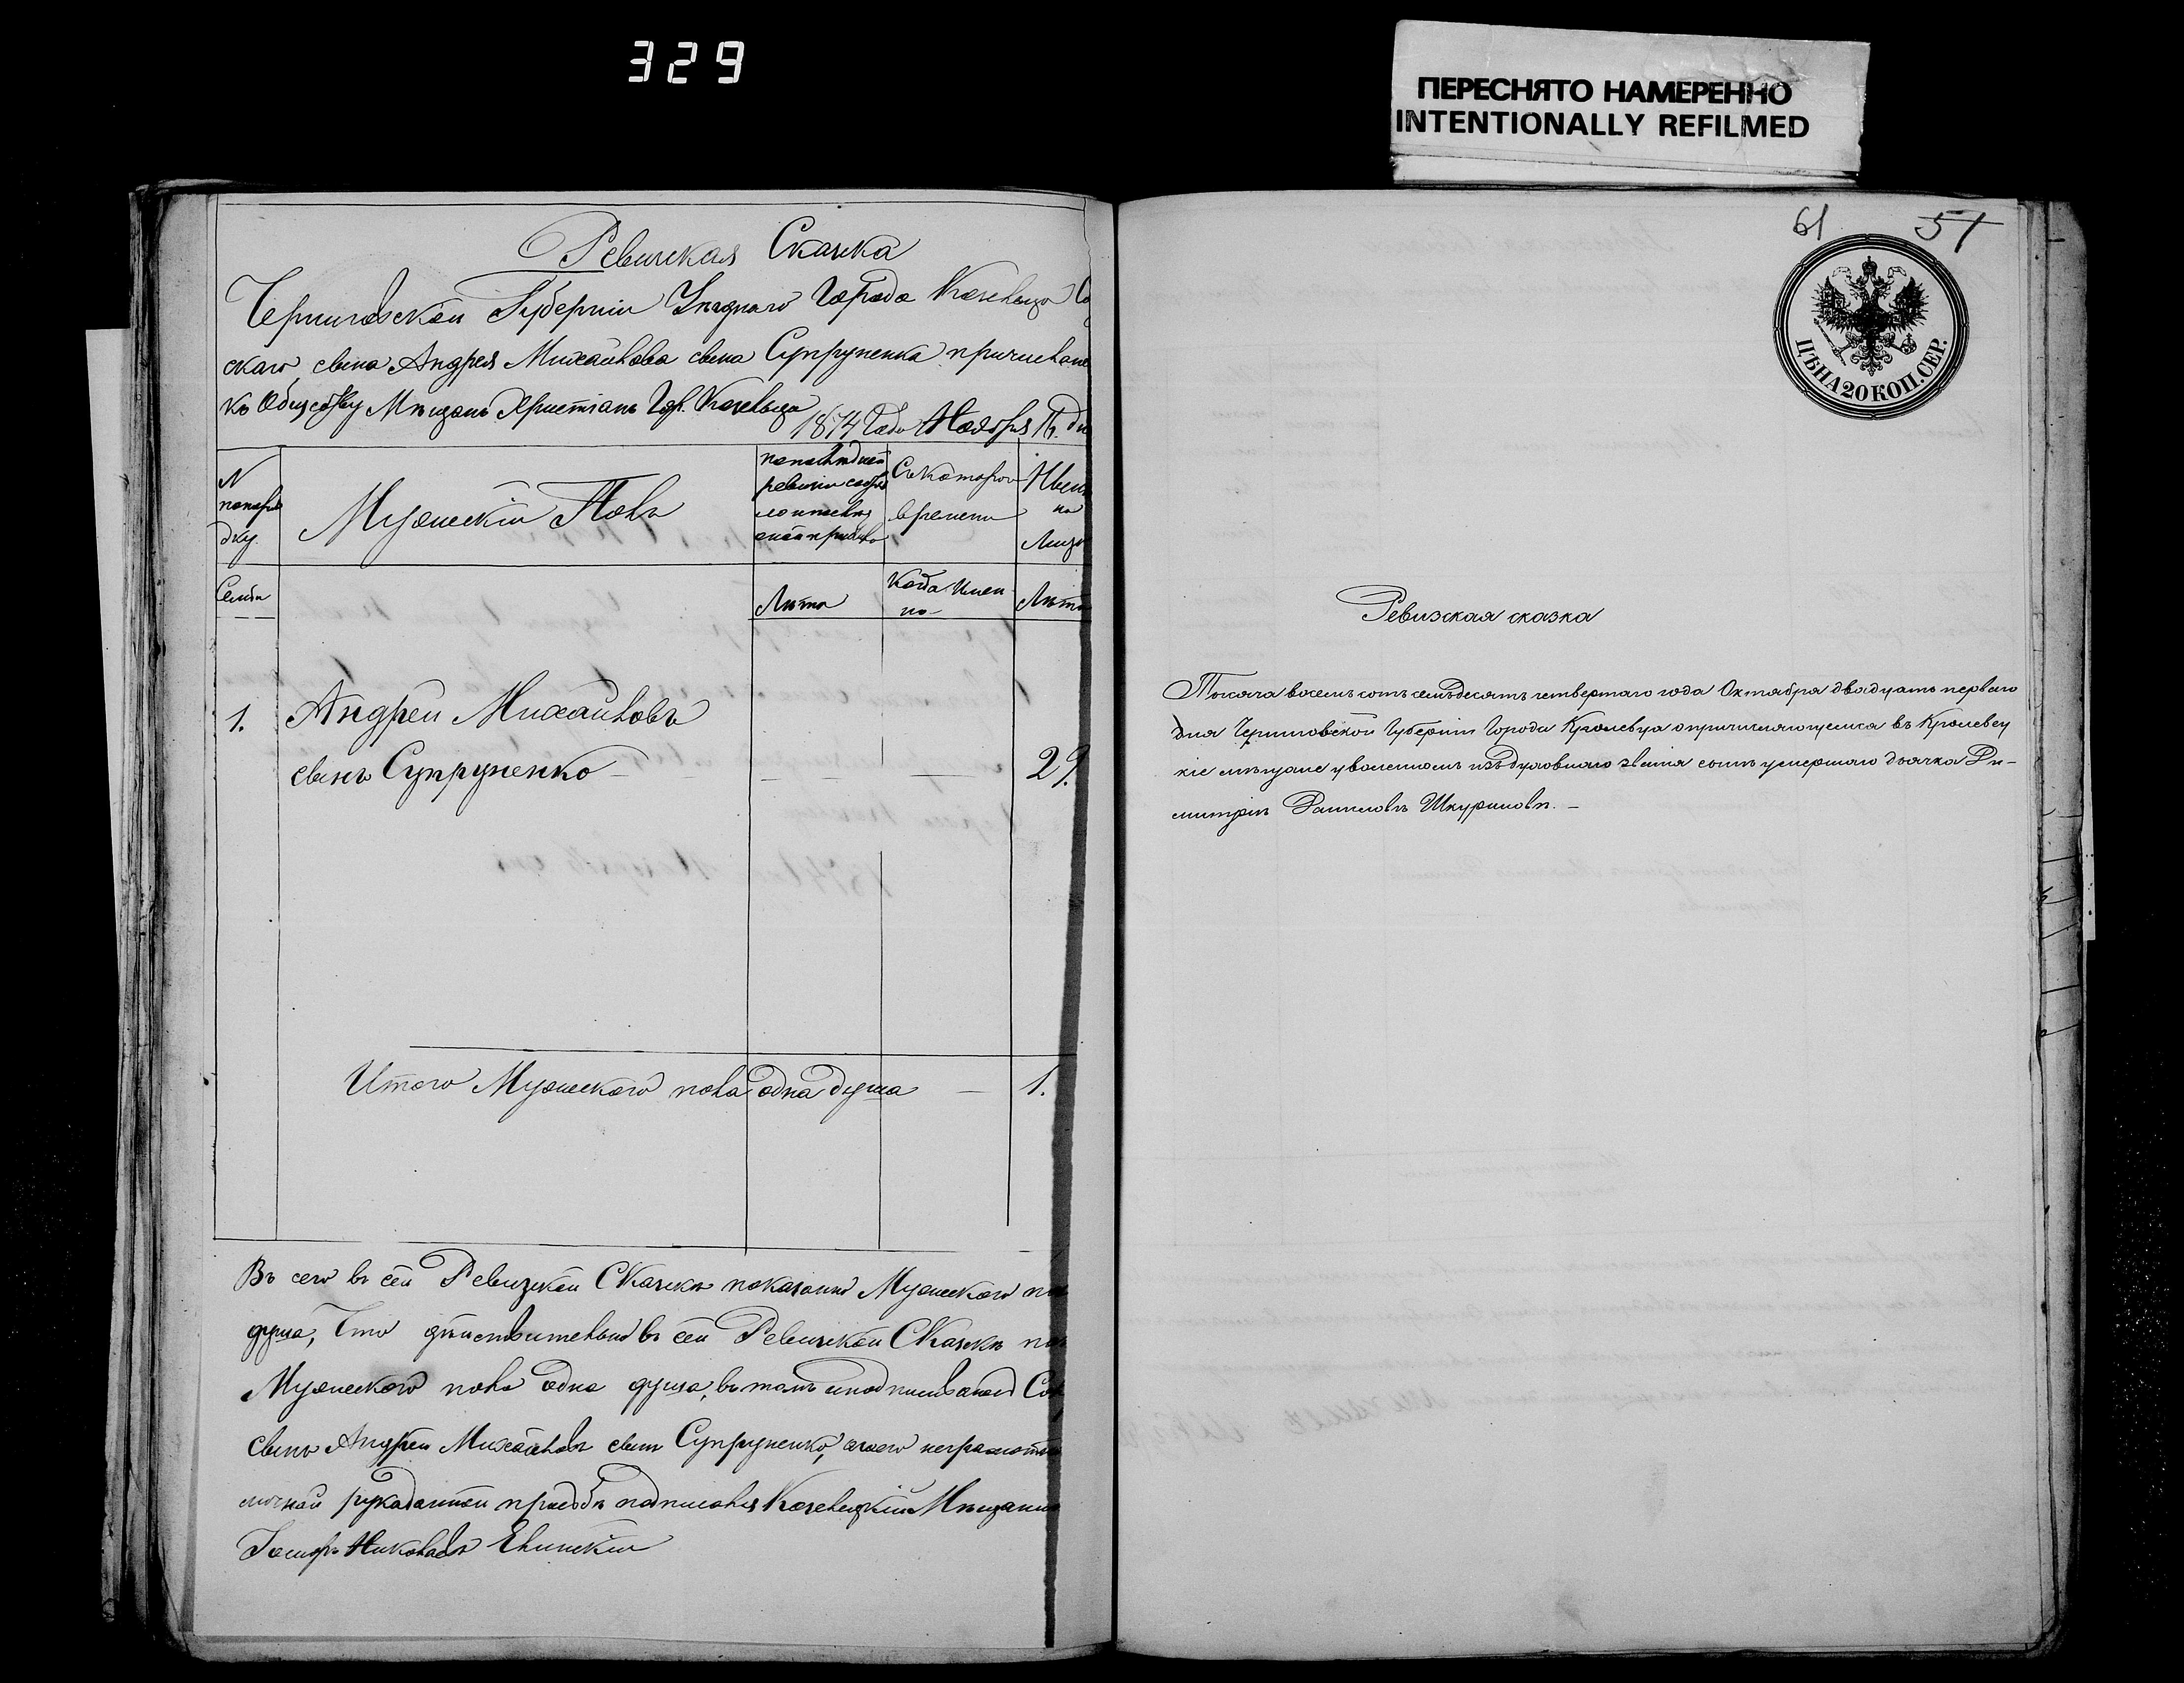 329
ПЕРЕСНЯТО НАМЕРЕННО
INTENTIONALLY REFILMED
Ревизская Сказка
Черниговской Губерніи Уѣзднаго Города Козельца
скаго сына Андрея Михайлова сына Супруненка причислен
къ Обществу Мѣщанъ Христіанъ Гор. Козельца
1874 Года Ноября дн
N
попоря
дку.
Мужескій Полъ
по послѣдней
ревизіи состоя
Съ котораго
времени
Нын
на
Лицо
Семьи
Лѣта
Когда Имен
но
Лѣта
1. Андрей Михайловъ
сынъ Супруненко — — 29.
Итого Мужескаго пола одна душа — 1.
Въ сего въ сей Ревизской Сказкѣ показано Мужескаго по
душа, Что дѣйствительно въ сей Ревизской Сказкѣ по
Мужескаго пола одна душа, въ томъ и подписался
Сынъ Андрей Михайловъ сынъ Супруненко, неграмотн
личной рукоданной прозьбѣ подписался Козелецкій Мѣщанин
Іосифъ Николаевъ Ельинскій
61 51
ЦѢНА 20 КОП. СЕР.
Ревизская сказка
Тысяча восемьсотъ семьдесятъ четвертаго года Октября двадцать перваго
дня Черниговской Губерніи Города Кролевца о причисляющемся въ Кролевец
кіе мѣщане уволенномъ изъ духовнаго званія сынѣ умершаго дьячка Ди-
митріѣ Даниловѣ Шкуриновѣ. —